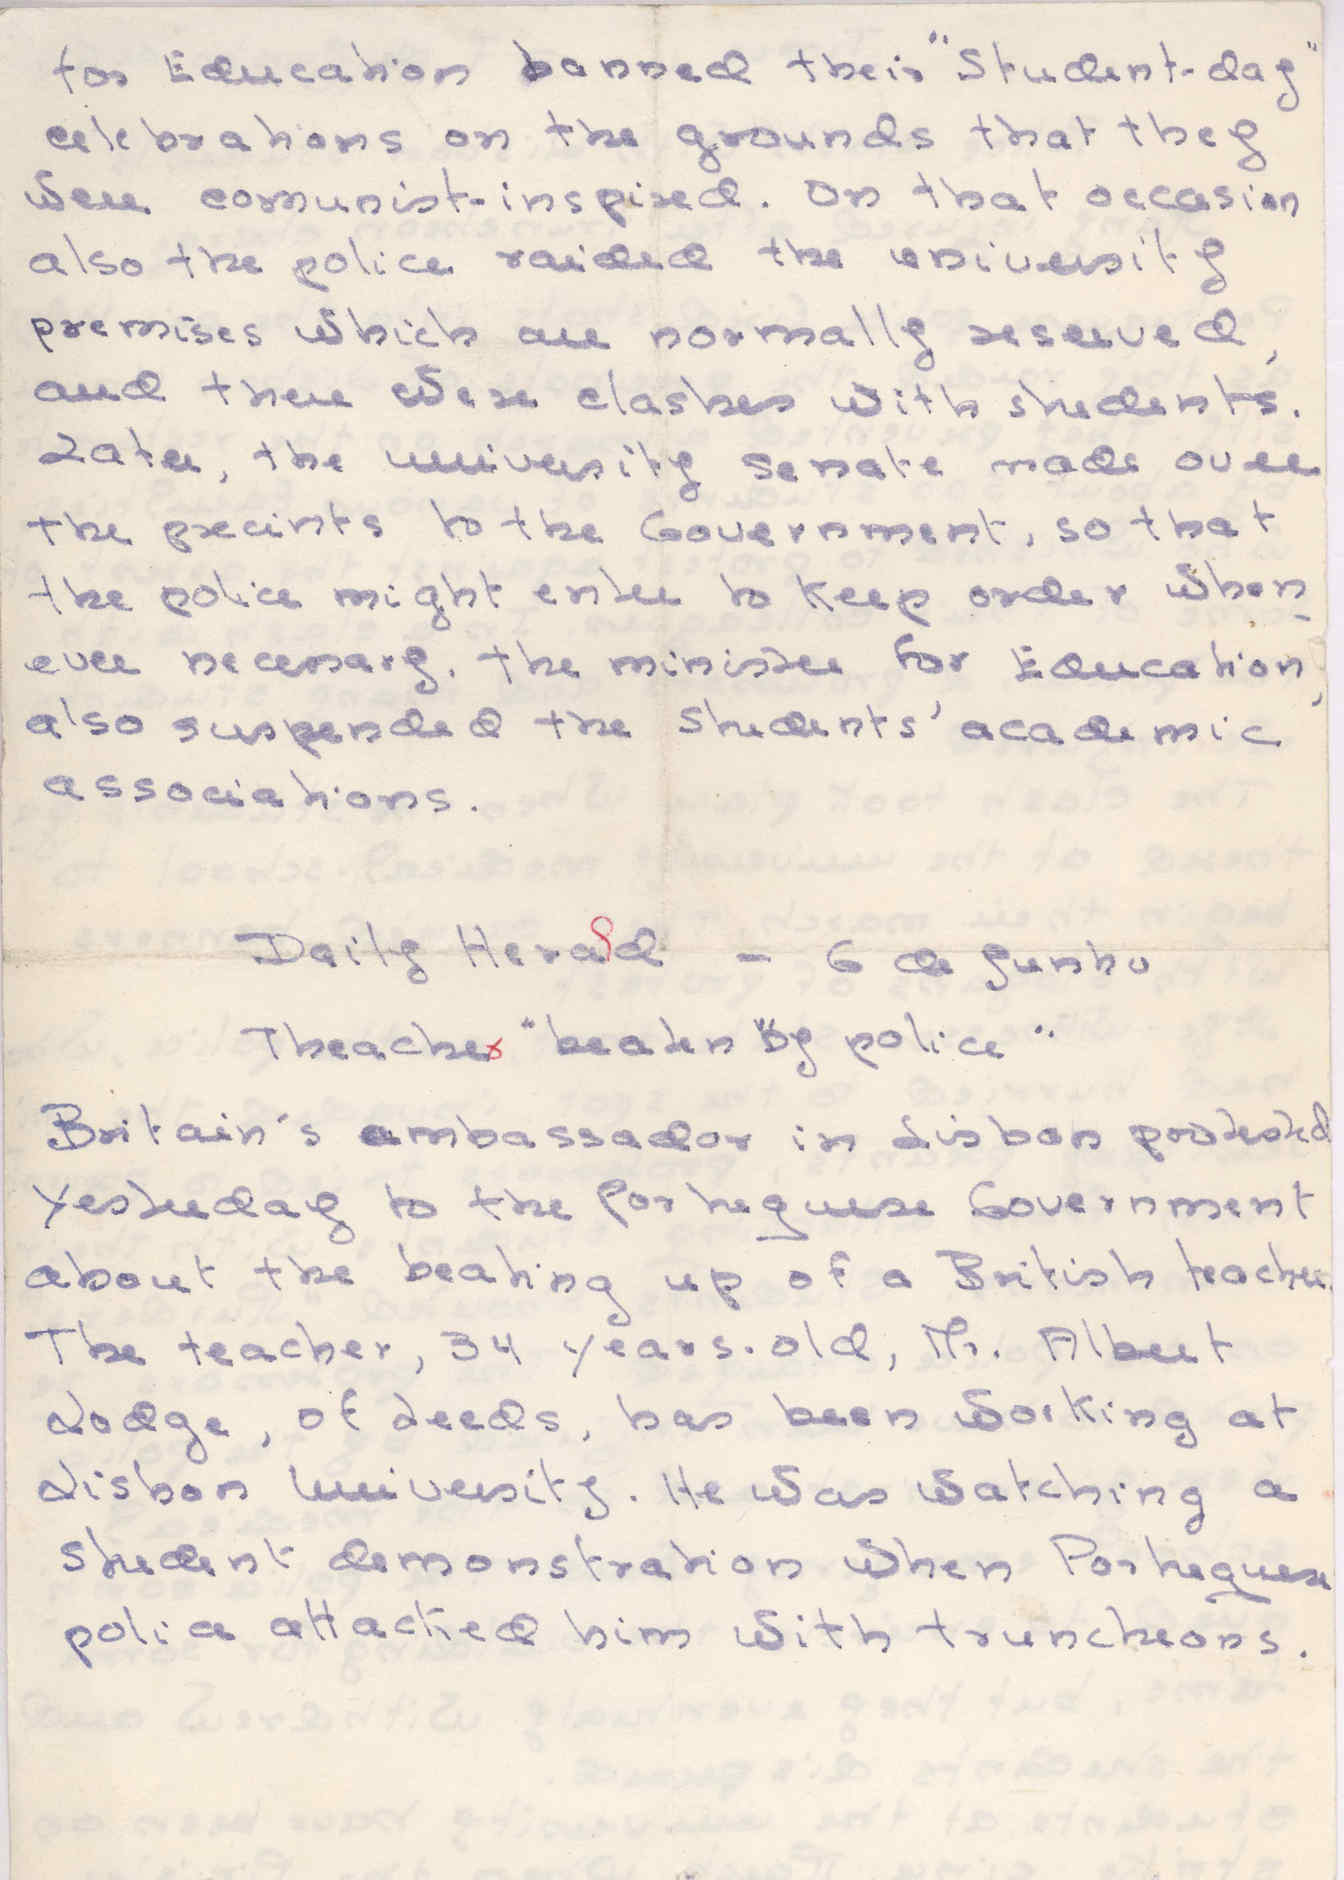 for Education banned their "Student-day"
celebrations on the grounds that they
were comunist-inspired. On that occasion
also the police raided the university
premises which are normally reserved,
and there were clashes with students.
Later, the university senate made over
the precints to the Government, so that
the police might enter to keep order when-
ever necessary. The minister for Education,
also suspended the students' academic
associations.
Daily Herald - 6 de Junho
Theacher "beaten by police"
Britain's ambassador in Lisbon protested
yesterday to the Portuguese Government
about the beating up of a British teacher.
The teacher, 34 years-old, Mr. Albert
Lodge, of Leeds, has been working at
Lisbon University. He was watching a
student demonstration when Portuguese
police attacked him with truncheons.